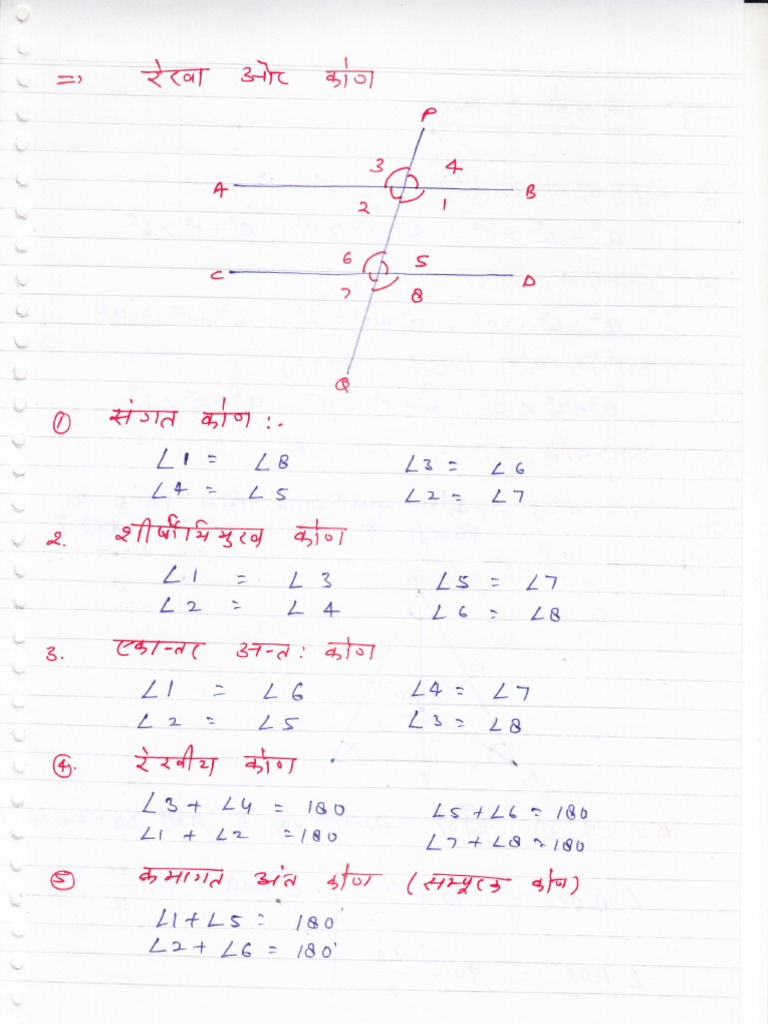 => रेखा ओर कोण
P
3 4
A B
2 1
6 5
C D
7 8
Q
① संगत कोण :-
∠1 = ∠8 ∠3 = ∠6
∠4 = ∠5 ∠2 = ∠7
2. शीर्षाभिमुख कोण
∠1 = ∠3 ∠5 = ∠7
∠2 = ∠4 ∠6 = ∠8
3. एकान्तर अन्त: कोण
∠1 = ∠6 ∠4 = ∠7
∠2 = ∠5 ∠3 = ∠8
④. रेखीय कोण
∠3 + ∠4 = 180 ∠5 + ∠6 = 180
∠1 + ∠2 = 180 ∠7 + ∠8 = 180
⑤ कमागत अंत कोण (सम्पूरक कोण)
∠1 + ∠5 = 180°
∠2 + ∠6 = 180°